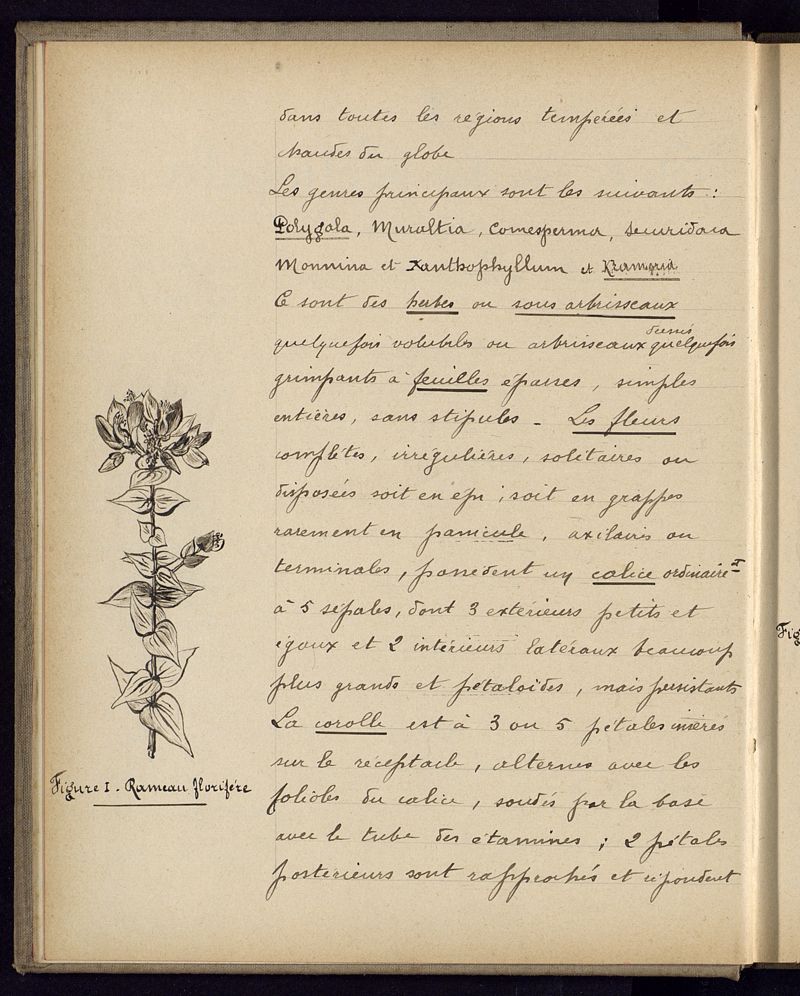 dans toutes les régions tempérées et
chaudes du globe
Les genres principaux sont les suivants :
Polygala, Muraltia, Comesperma, Securidaca
Monnina et Xanthophyllum et Krameria
Ce sont des herbes ou sous arbrisseaux
quelquefois volubiles ou arbrisseaux quelquefois
grimpants à feuilles éparses, simples
entières, sans stipules - Les fleurs
complètes, irrégulières, solitaires ou
disposées soit en épi ; soit en grappes
rarement en panicule, axilaires ou
terminales, possèdent un calice ordinairet
à 5 sépales, dont 3 extérieurs petits et
égaux et 2 intérieurs latéraux beaucoup
plus grands et pétaloïdes, mais persistants
La corolle est à 3 ou 5 pétales insérés
sur le réceptacle, alternes avec les
folioles du calice, soudés par la base
avec le tube des étamines ; 2 pétales
postérieurs sont rapprochés et répondent
Figure I - Rameau florifère
Fig